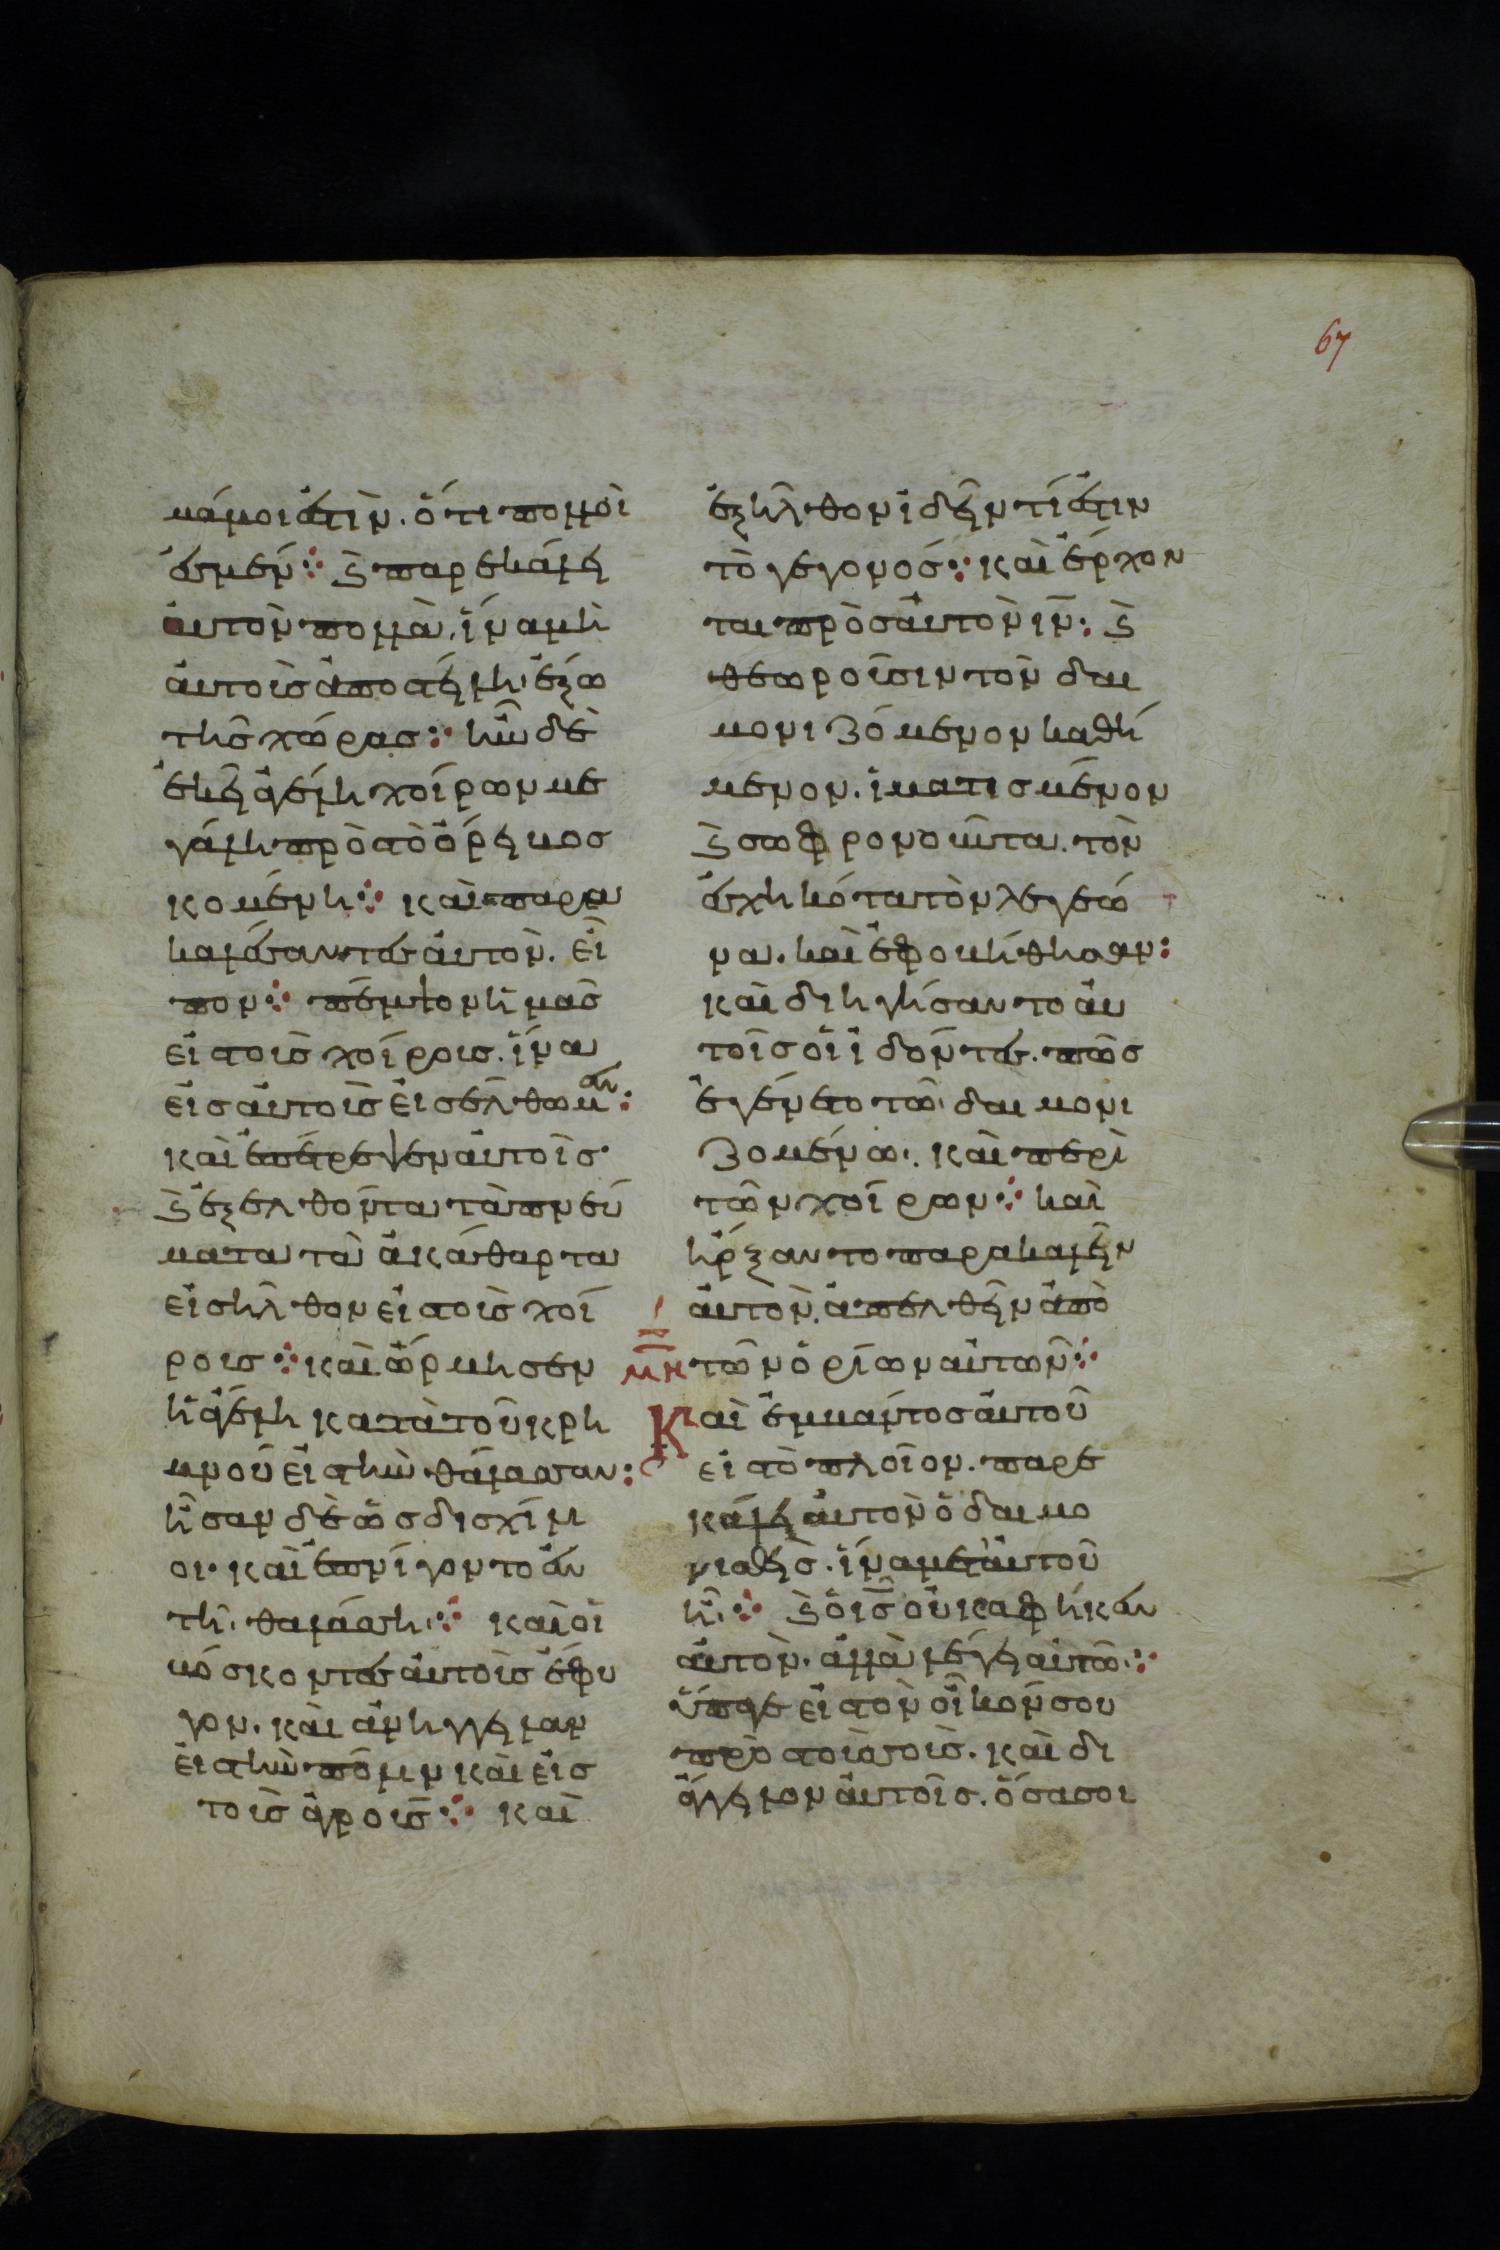 μά μοι ἐστὶν. ὅτι πολλοὶ
ἐσμέν ⁘ ϗ παρεκάλει
αὐτὸν πολλὰ, ἵνα μὴ
αὐτοὺς ἀποστείλη ἔξω
τῆς χώρας ⁘ ἦν δὲ
ἐκεῖ ἀγέλη χοίρων με
γάλη πρὸς τὸ ὄρει βοσ
κομένη ⁘ καὶ παρα
καλέσαντες αὐτὸν. εἶ
πον ⁘ πέμψον ἡμᾶς
εἰς τοὺς χοίρους. ἵνα
εἰς αὐτοὺς εἰσέλθωμεν:
καὶ ἐπέτρεψεν αὐτοῖς·
ϗ ἐξελθόντα τὰ πνεύ
ματα τὰ ἀκάθαρτα
εἰσῆλθον εἰς τοὺς χοί
ρους ⁘ καὶ ὥρμησεν
ἡ ἀγέλη κατὰ τοῦ κρη
μνοῦ εἰς τὴν θάλασσαν:
ἦσαν δὲ ὡς δισχίλι
οι· καὶ ἐπνίγοντο ἐν
τῆ θαλάσση ⁘ καὶ οἱ
βόσκοντες αὐτοὺς ἔφυ
γον. καὶ ἀνήγγειλαν
εἰς τὴν πόλιν καὶ εἰς
τοὺς ἀγρούς ⁘ καὶ
67
ἐξῆλθον ἰδεῖν τί ἐστιν
τὸ γεγονός ⁘ καὶ ἔρχον
ται πρὸς αὐτὸν ιν̅: ϗ
θεωροῦσιν τὸν δαι
μονιζόμενον καθή
μενον. ἱματισμένον
ϗ σωφρονοῦντα. τὸν
ἐσχηκότα τὸν λεγεῶ
να. καὶ ἐφοβήθησαν:
καὶ διηγήσαντο αὐ
τοῖς οἱ ἰδόντες. πῶς
ἐγένετο τῶ δαιμονι
ζομένω. καὶ περὶ
τῶν χοίρων ⁘ καὶ
ἤρξαντο παρακαλεῖν
αὐτὸν. ἀπελθεῖν ἀπὸ
μη τῶν ὁρίων αὐτῶν ⁘
Καὶ ἐμβάντος αὐτοῦ
εἰς τὸ πλοῖον. παρε
κάλει αὐτὸν ὁ δαιμο
νισθεὶς. ἵνα μετ' αὐτοῦ
ἦ ⁘ ϗ ὁ ις̅ οὐκ ἀφῆκεν
αὐτὸν. ἀλλὰ λέγει αὐτῶ ⁘
ὕπαγε εἰς τὸν οἶκόν σου
πρὸς τοὺς σοὺς. καὶ δι
άγγειλον αὐτοῖς. ὅσα σοι